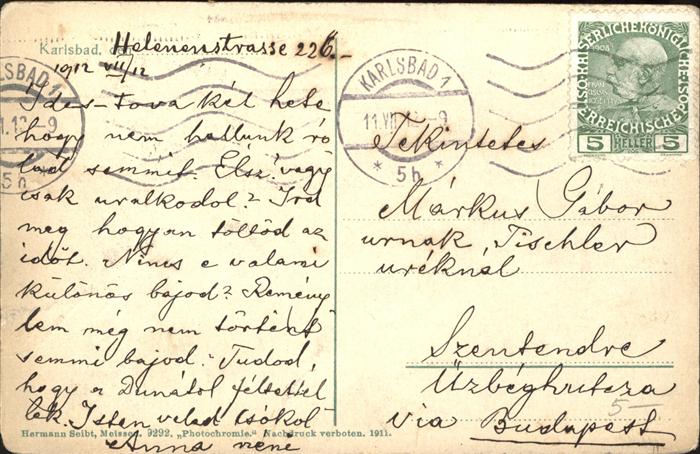 Karlsbad, den Helenenstrasse 226.-
1912 VII/12
Ides-tova két hete
hogy nem hallunk ró
lad semmit. Élsz vagy
csak uralkodol? Ird
meg hogyan töltöd az
időt. Nincs e valami
különös bajod? Remény
lem még nem történt
semmi bajod. Tudod,
hogy a Dunától féltettel
lek. Isten veled csókol
Anna néni
Hermann Seibt, Meissen. 9292. „Photochromie." Nachdruck verboten. 1911.
KARLSBAD 1
11.VII.12-9
* 5h *
1908
KAISERLICHE KÖNIGLICHE
ÖSTERREICHISCHE
5 HELLER 5
Tekintetes
Márkus Gábor
urnak, Tischler
uréknál
Szentendre
via Budapest
5-